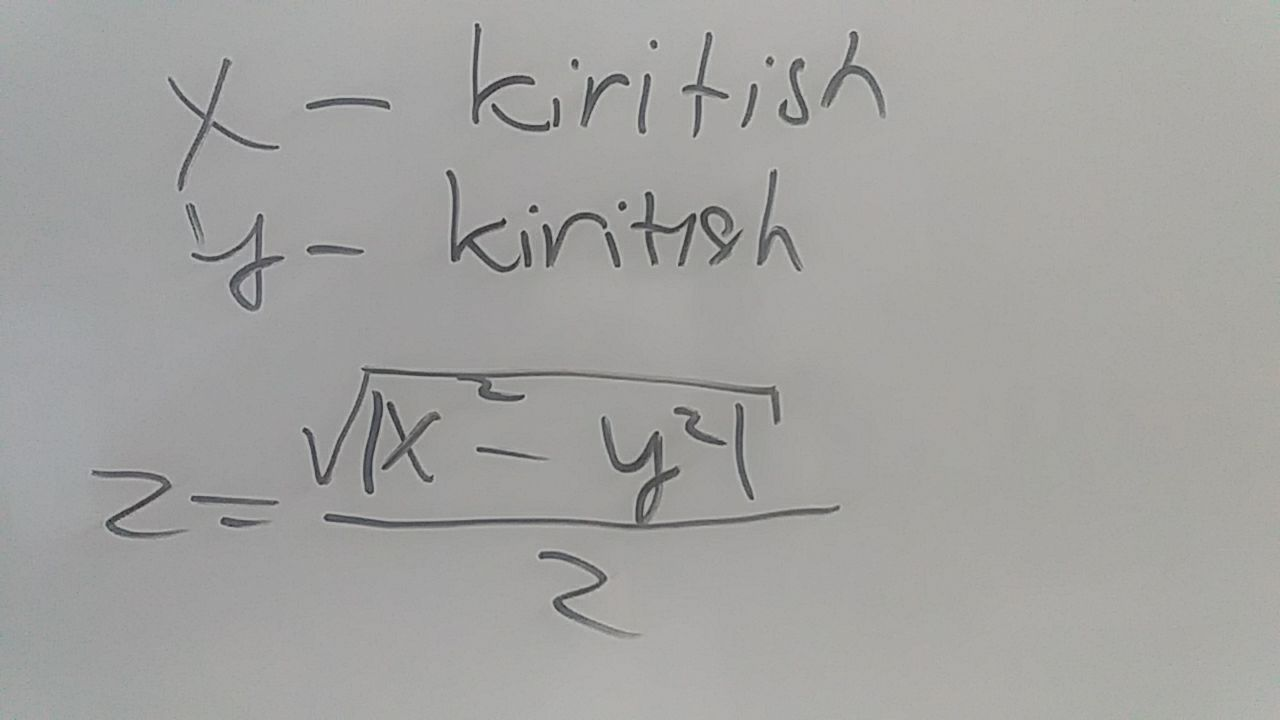 x - kiritish
y - kiritish
z = √|x² - y²| / 2